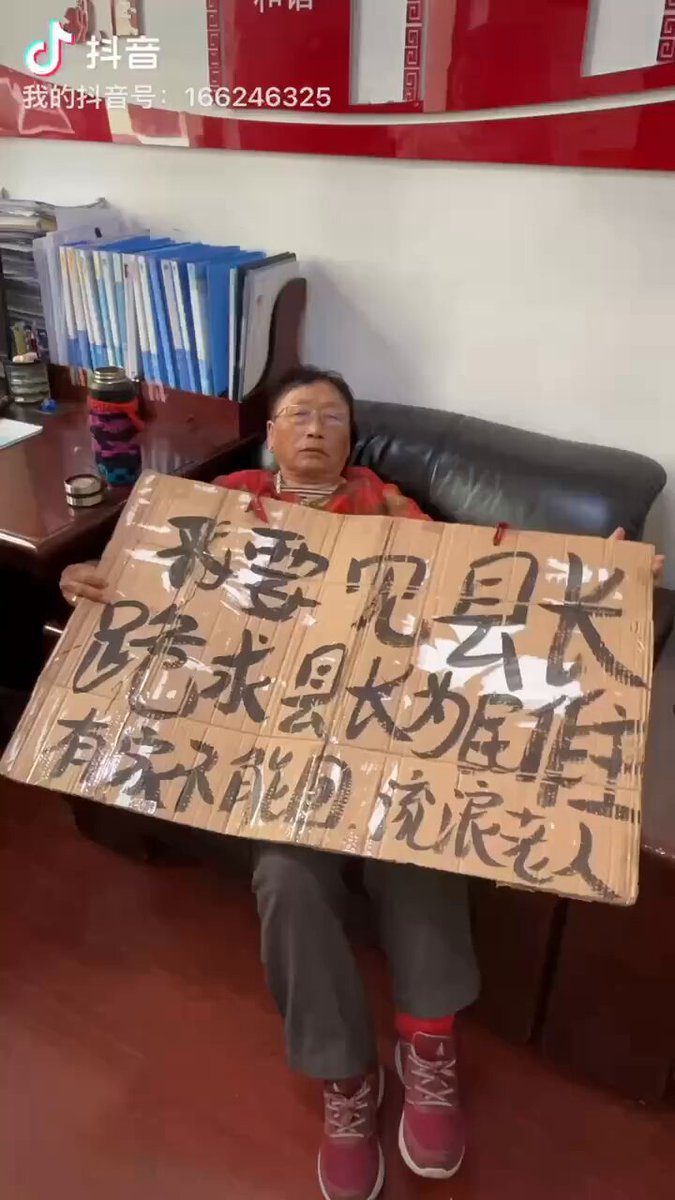 和谐
抖音
我的抖音号：166246325
我要见县长
跪求县长为民作主
有家不能回.流浪老人